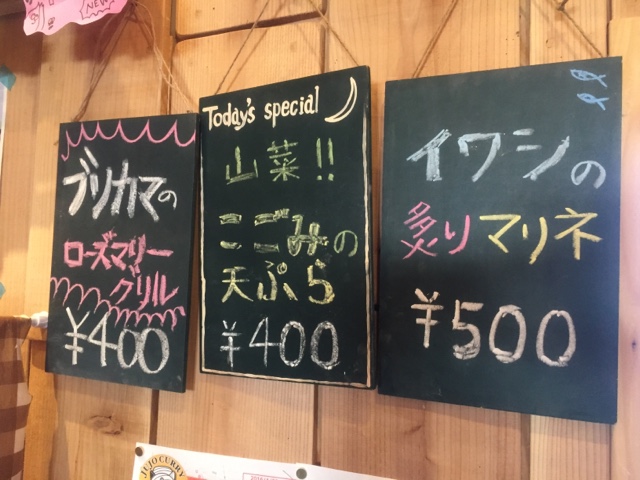 NEW
ブリカマの
ローズマリー
グリル
¥400
Today's special
山菜!!
こごみの
天ぷら
¥400
イワシの
炙りマリネ
¥500
JUJO CURRY